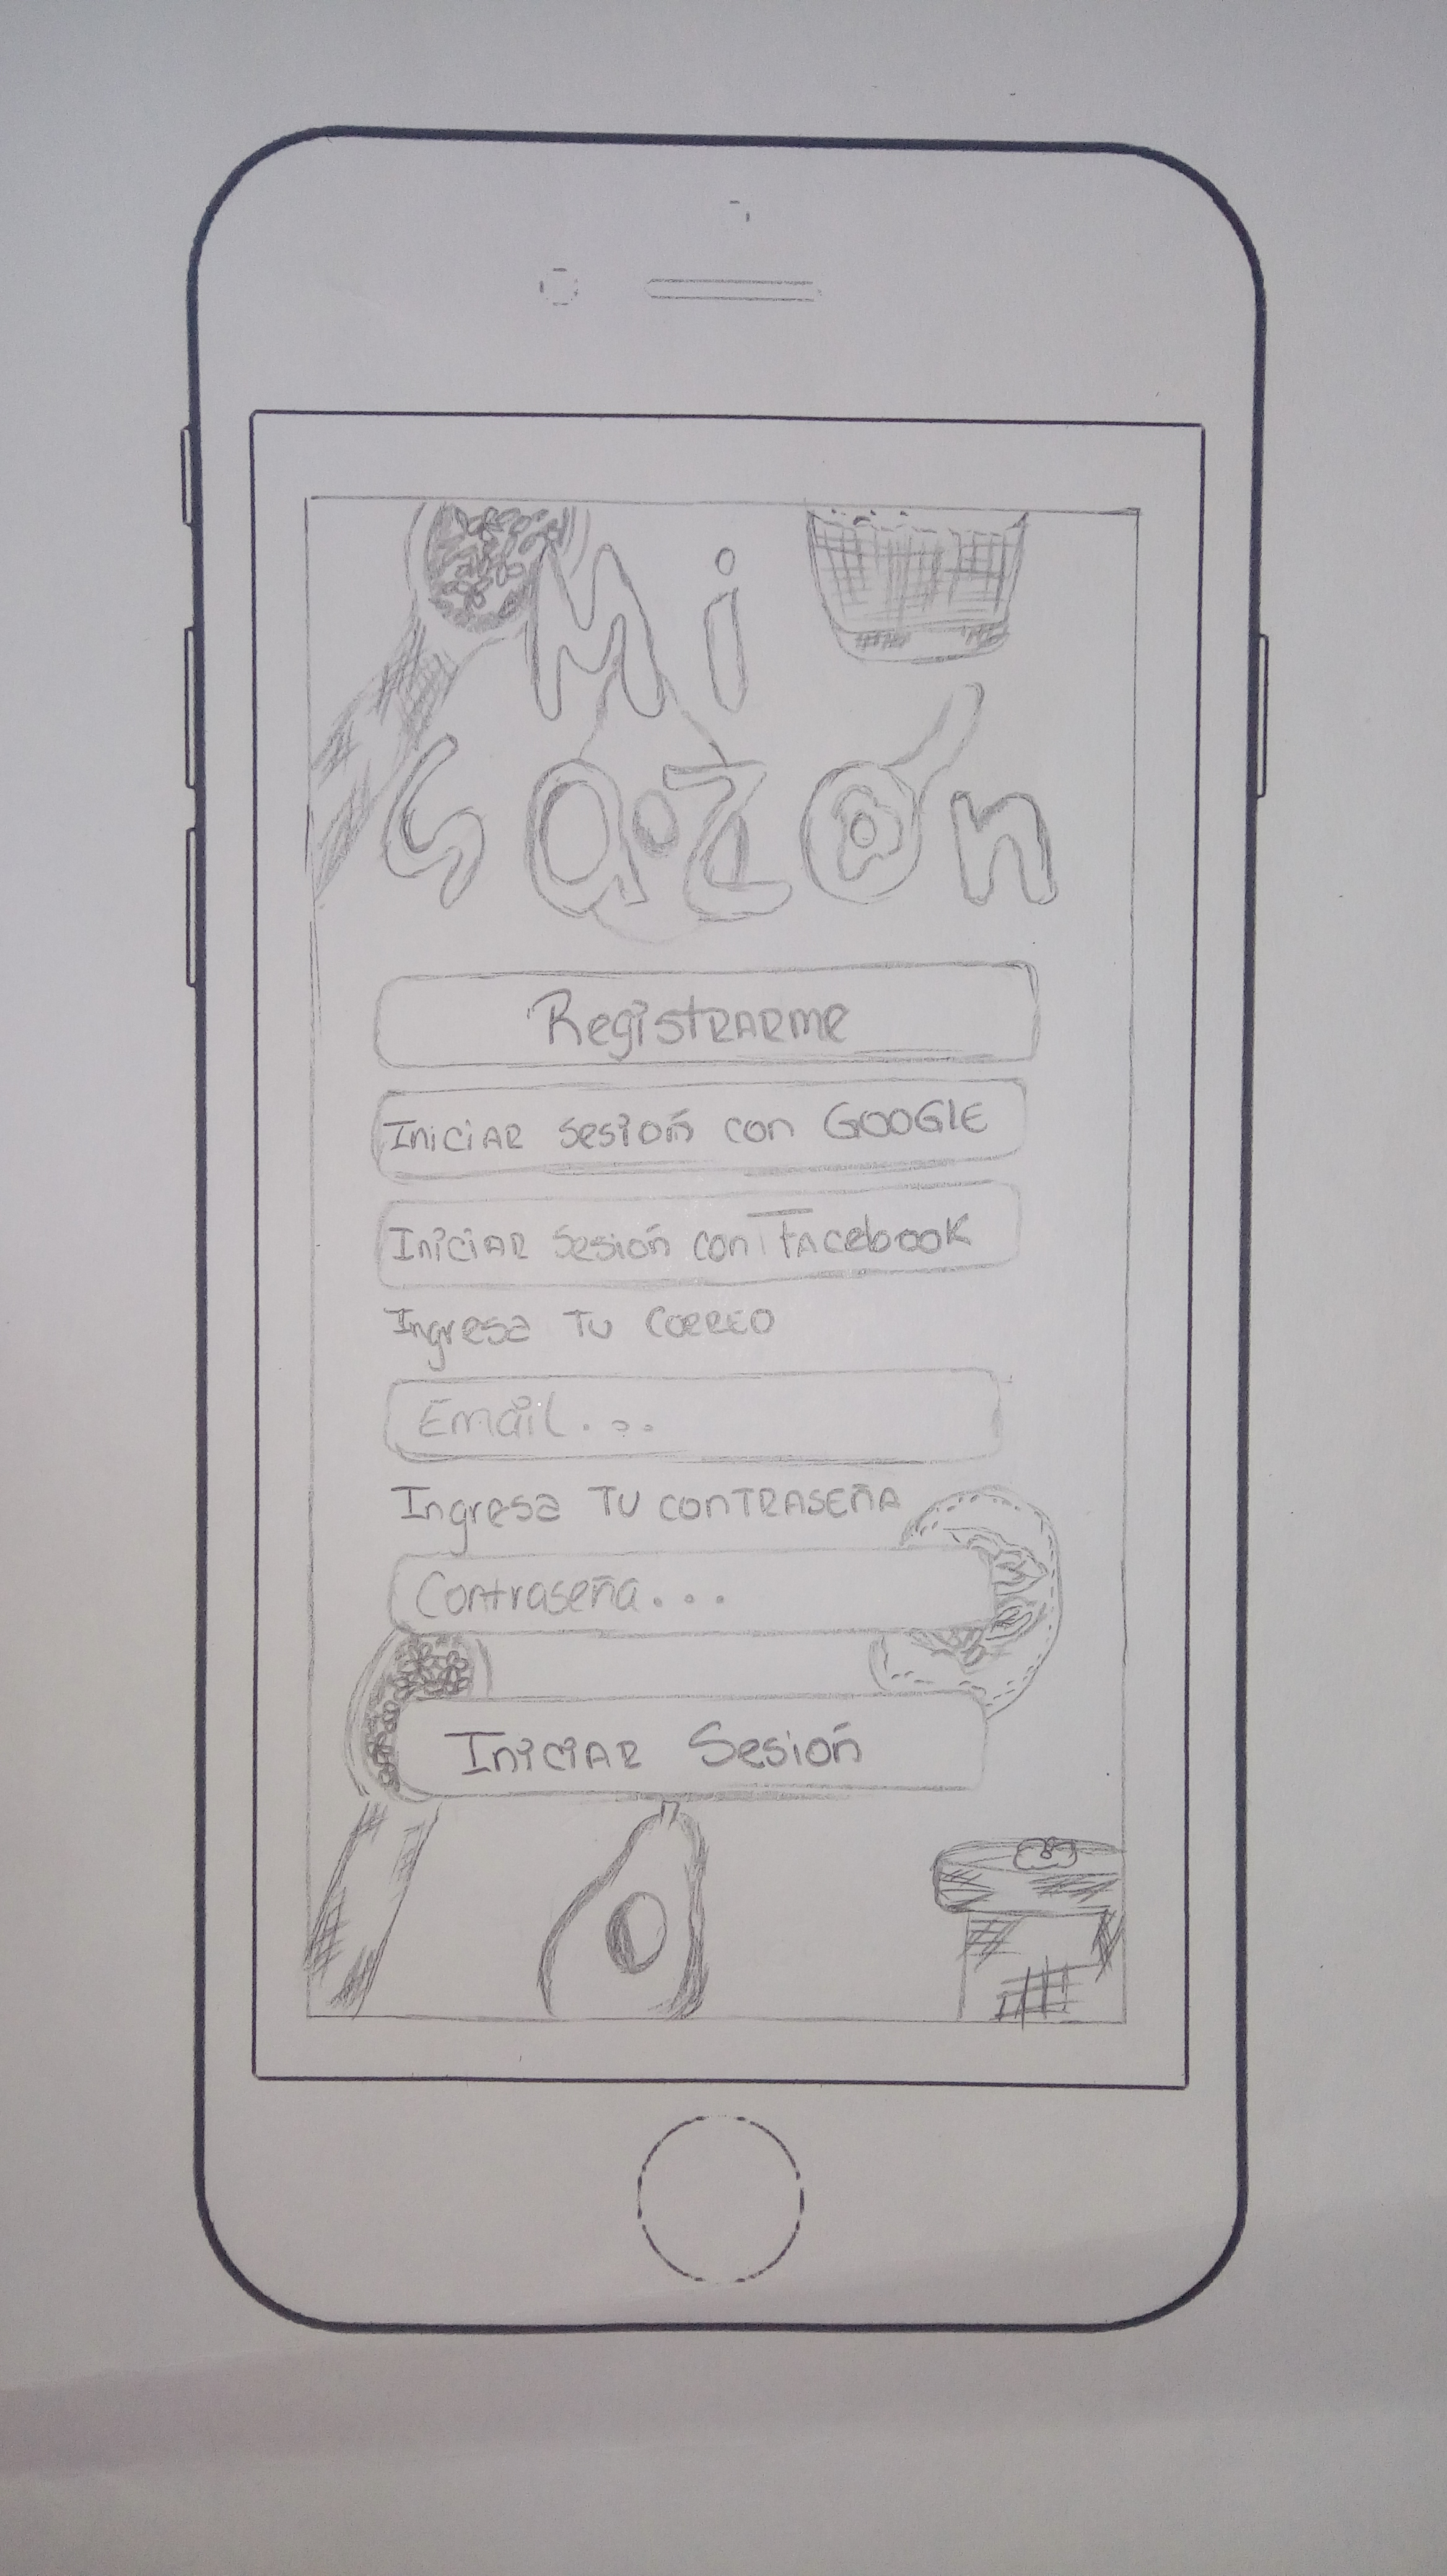 Mi
Sazón
Registrarme
Iniciar sesión con GOOGLE
Iniciar sesión con Facebook
Ingresa Tu CORREO
Email...
Ingresa Tu CONTRASEÑA
Contraseña...
Iniciar Sesión